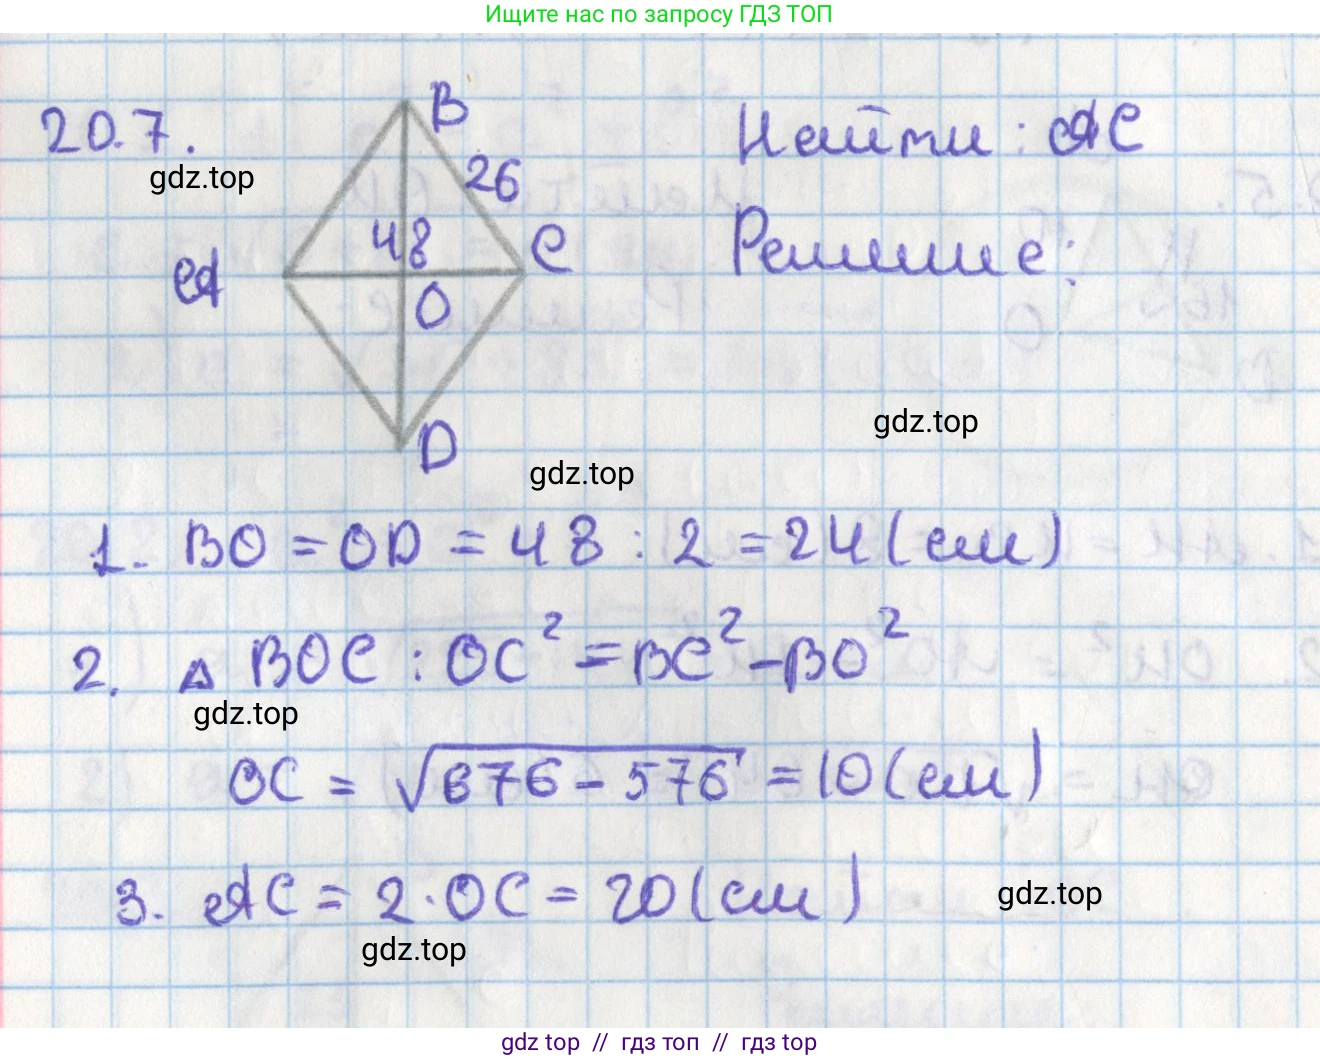 Ищите нас по запросу ГДЗ ТОП
20.7.
B
26
48
A
C
O
D
Найти: AC
Решение:
gdz.top
gdz.top
gdz.top
1. BO = OD = 48 : 2 = 24 (см)
2. △ BOC : OC² = BC² - BO²
gdz.top
OC = √676 - 576 = 10 (см)
3. AC = 2 · OC = 20 (см)
gdz.top
gdz.top
gdz top // гдз топ // гдз top